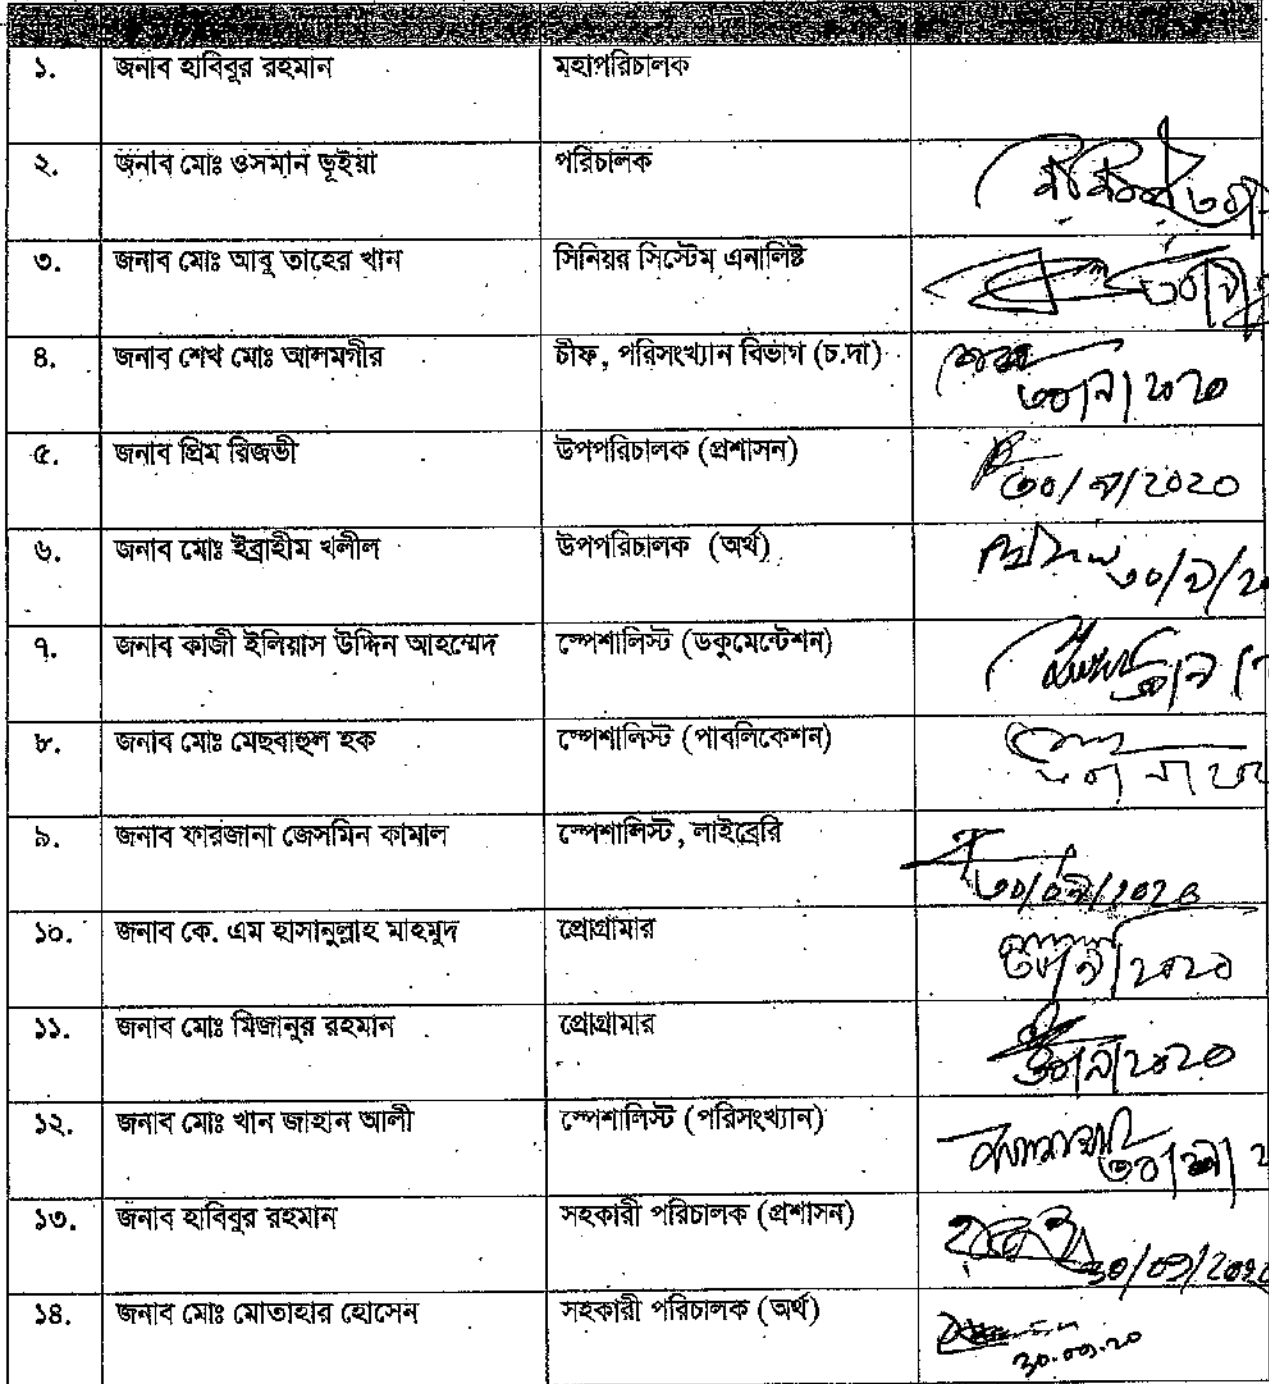 ১. জনাব হাবিবুর রহমান মহাপরিচালক
২. জনাব মোঃ ওসমান ভূইয়া পরিচালক
৩. জনাব মোঃ আবু তাহের খান সিনিয়র সিস্টেম এনালিষ্ট
৪. জনাব শেখ মোঃ আলমগীর চীফ, পরিসংখ্যান বিভাগ (চ.দা)
৩০/৯/২০২০
৫. জনাব প্রিম রিজভী উপপরিচালক (প্রশাসন)
৩০/৯/২০২০
৬. জনাব মোঃ ইব্রাহীম খলীল উপপরিচালক (অর্থ)
৩০/৯/২০
৭. জনাব কাজী ইলিয়াস উদ্দিন আহম্মেদ স্পেশালিস্ট (ডকুমেন্টেশন)
৮. জনাব মোঃ মেছবাহুল হক স্পেশালিস্ট (পাবলিকেশন)
৯. জনাব ফারজানা জেসমিন কামাল স্পেশালিস্ট, লাইব্রেরি
৩০/০৯/২০২০
১০. জনাব কে. এম হাসানুল্লাহ মাহমুদ প্রোগ্রামার
৩০/৯/২০২০
১১. জনাব মোঃ মিজানুর রহমান প্রোগ্রামার
৩০/৯/২০২০
১২. জনাব মোঃ খান জাহান আলী স্পেশালিস্ট (পরিসংখ্যান)
১৩. জনাব হাবিবুর রহমান সহকারী পরিচালক (প্রশাসন)
৩০/০৯/২০২০
১৪. জনাব মোঃ মোতাহার হোসেন সহকারী পরিচালক (অর্থ)
৩০.০৯.২০